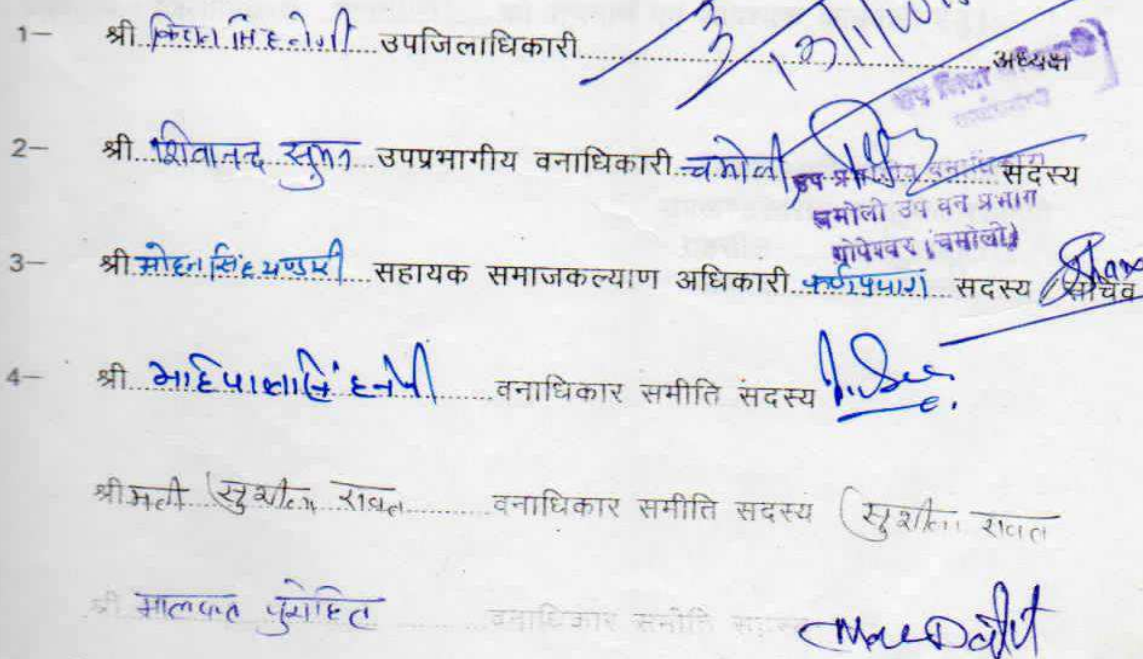 1— श्री उपजिलाधिकारी अध्यक्ष
2— श्री शिवानन्द सुमन उपप्रभागीय वनाधिकारी चमोली सदस्य
उप प्रभागीय वनाधिकारी
चमोली उप वन प्रभाग
गोपेश्वर (चमोली)
3— श्री मोहन सिंह भण्डारी सहायक समाजकल्याण अधिकारी कर्णप्रयाग सदस्य सचिव
4— श्री वनाधिकार समीति सदस्य
श्रीमती सुशीला रावत वनाधिकार समीति सदस्य सुशीला रावत
श्री पुरोहित वनाधिकार समीति सदस्य